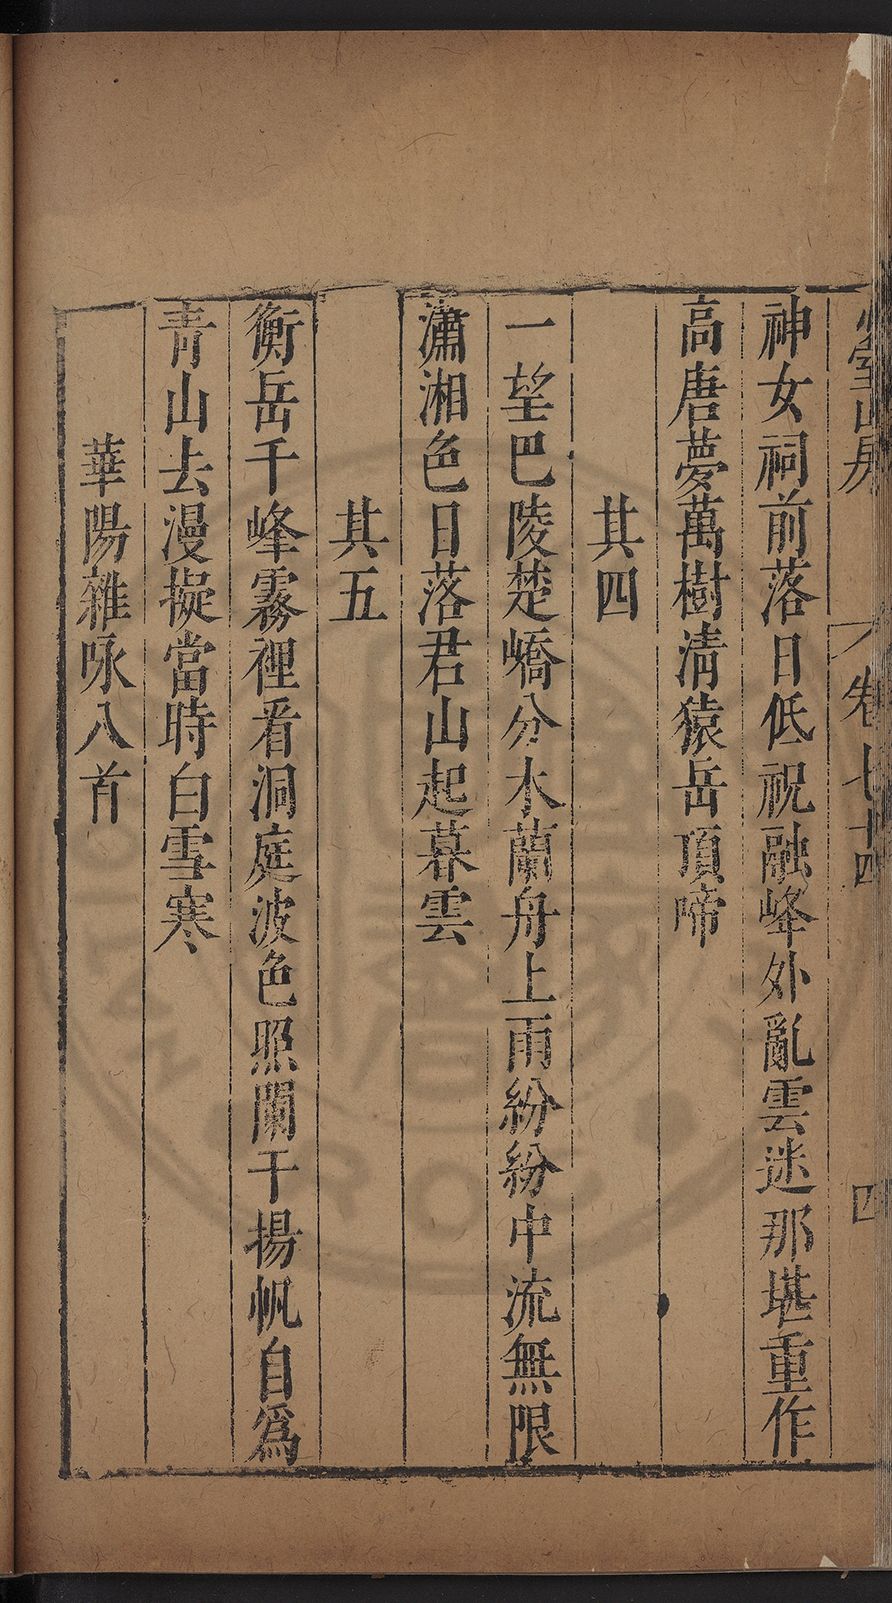 山房
卷七十四
四
神女祠前落日低祝融峰外亂雲迷那堪重作
高唐夢萬樹清猿岳頂啼
其四
一望巴陵楚嶠分木蘭舟上雨紛紛中流無限
瀟湘色日落君山起暮雲
其五
衡岳千峰霧裡看洞庭波色照闌干揚帆自爲
青山去漫擬當時白雪寒
華陽雜咏八首